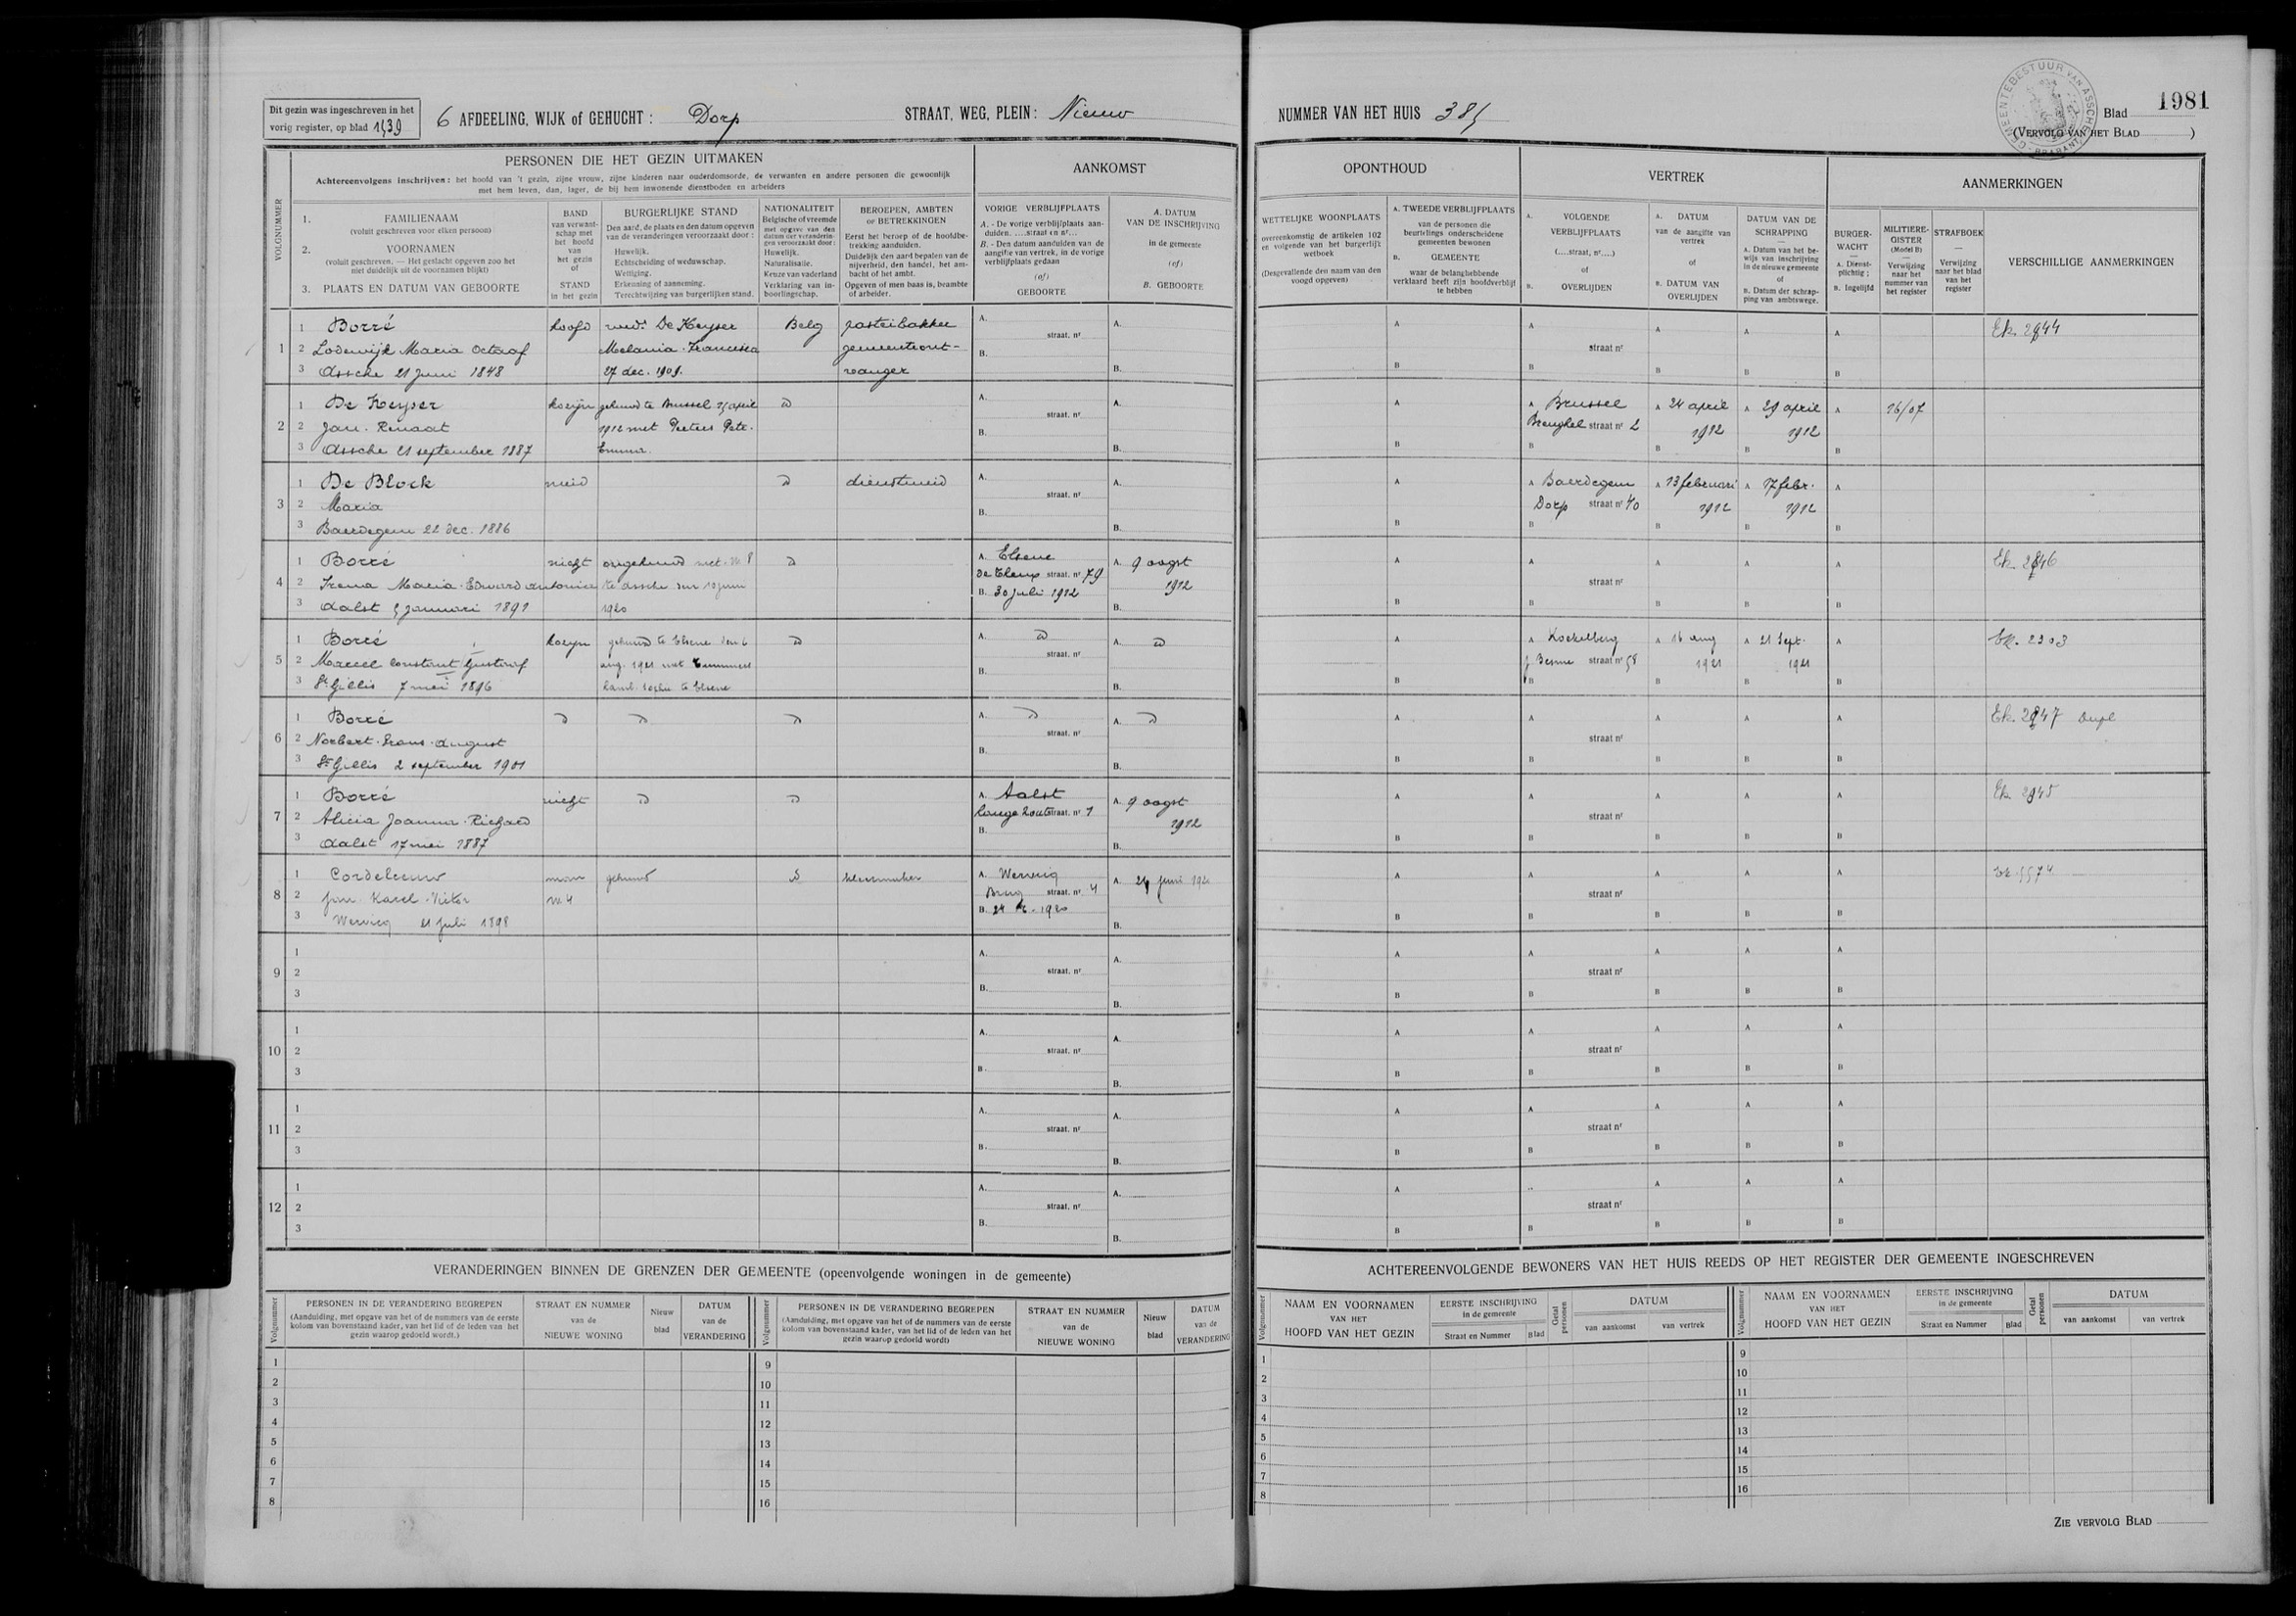 Dit gezin was ingeschreven in het
vorig register, op blad 1539
6 AFDEELING, WIJK of GEHUCHT : Dorp
STRAAT, WEG, PLEIN : Nieuw
NUMMER VAN HET HUIS 385
GEMEENTEBESTUUR VAN ASSCHE - BRABANT
Blad 1981
(VERVOLG VAN HET BLAD )
VOLGNUMMER
PERSONEN DIE HET GEZIN UITMAKEN
Achtereenvolgens inschrijven : het hoofd van 't gezin, zijne vrouw, zijne kinderen naar ouderdomsorde, de verwanten en andere personen die gewoonlijk
met hem leven, dan, lager, de bij hem inwonende dienstboden en arbeiders
1. FAMILIENAAM
(voluit geschreven voor elken persoon)
2. VOORNAMEN
(voluit geschreven. — Het geslacht opgeven zoo het
niet duidelijk uit de voornamen blijkt)
3. PLAATS EN DATUM VAN GEBOORTE
BAND
van verwant-
schap met
het hoofd
van
het gezin
of
STAND
in het gezin
BURGERLIJKE STAND
Den aard, de plaats en den datum opgeven
van de veranderingen veroorzaakt door :
Huwelijk.
Echtscheiding of weduwschap.
Wettiging.
Erkenning of aanneming.
Terechtwijzing van burgerlijken stand.
NATIONALITEIT
Belgische of vreemde
met opgave van den
datum der veranderin-
gen veroorzaakt door :
Huwelijk.
Naturalisatie.
Keuze van vaderland
Verklaring van in-
boorlingschap.
BEROEPEN, AMBTEN
OF BETREKKINGEN
Eerst het beroep of de hoofdbe-
trekking aanduiden.
Duidelijk den aard bepalen van de
nijverheid, den handel, het am-
bacht of het ambt.
Opgeven of men baas is, beambte
of arbeider.
AANKOMST
VORIGE VERBLIJFPLAATS
A. - De vorige verblijfplaats aan-
duiden. ....straat en nr...
B. - Den datum aanduiden van de
aangifte van vertrek, in de vorige
verblijfplaats gedaan
(of)
GEBOORTE
A. DATUM
VAN DE INSCHRIJVING
in de gemeente
(of)
B. GEBOORTE
OPONTHOUD
WETTELIJKE WOONPLAATS
overeenkomstig de artikelen 102
en volgende van het burgerlijk
wetboek
(Desgevallende den naam van den
voogd opgeven)
A. TWEEDE VERBLIJFPLAATS
van de personen die
beurtelings onderscheidene
gemeenten bewonen
B. GEMEENTE
waar de belanghebbende
verklaard heeft zijn hoofdverblijf
te hebben
VERTREK
A. VOLGENDE
VERBLIJFPLAATS
(....straat, nr....)
of
B. OVERLIJDEN
A. DATUM
van de aangifte van
vertrek
of
B. DATUM VAN
OVERLIJDEN
DATUM VAN DE
SCHRAPPING
—
A. Datum van het be-
wijs van inschrijving
in de nieuwe gemeente
of
B. Datum der schrap-
ping van ambtswege.
AANMERKINGEN
BURGER-
WACHT
—
A. Dienst-
plichtig ;
B. Ingelijfd
MILITIERE-
GISTER
(Model B)
—
Verwijzing
naar het
nummer van
het register
STRAFBOEK
—
Verwijzing
naar het blad
van het
register
VERSCHILLIGE AANMERKINGEN
1
1 Borré
2 Lodewijk Maria Octaaf
3 Assche 21 Juni 1848
hoofd
wed. De Keyser
Melania Francisca
27 dec. 1909.
Belg
pasteibakker
gemeentont-
vanger
Ek. 2944
2
1 De Keyser
2 Jan Renaat
3 Assche 21 september 1887
kozijn
gehuwd te Brussel 25 april
1912 met Peeters Petr.
Emma.
D
A Brussel
Breughel straat nr 2
A 24 april
1912
A 29 april
1912
16/07
3
1 De Block
2 Maria
3 Baerdegem 22 dec. 1886
meid
D
dienstmeid
A Baerdegem
Dorp straat nr 40
A 13 februari
1912
A 17 febr.
1912
4
1 Borré
2 Irena Maria Edward Antonia
3 Aalst 5 Januari 1891
nicht
ongehuwd met N 8
te Assche den 10 juni
1920
D
A. Elsene
straat. nr 79
B. 30 juli 1912
A. 9 oogst
1912
Ek. 2946
5
1 Borré
2 Marcel Constant Gustaaf
3 St Gillis 7 mei 1896
kozijn
gehuwd te Elsene den 6
aug. 1921 met
te Elsene
D
A. D
A. D
A Koekelberg
straat nr 58
A 16 aug
1921
A 21 Sept.
1921
Ek. 2303
6
1 Borré
2 Norbert Frans August
3 St Gillis 2 september 1901
D
D
D
A. D
A. D
Ek. 2947 Dupl
7
1 Borré
2 Alicia Joanna Richard
3 Aalst 17 mei 1887
nicht
D
D
A. Aalst
Lange Zout straat. nr 1
A. 9 oogst
1912
Ek. 2945
8
1 Cordeleeuw
2 Jan Karel Victor
3 Wervicq 21 Juli 1898
man
N. 4
gehuwd
D
kleermaker
A. Wervicq
Brug straat. nr 4
B. 24 6. 1920
A. 24 juni 192
Ek. 5574
9
10
11
12
VERANDERINGEN BINNEN DE GRENZEN DER GEMEENTE (opeenvolgende woningen in de gemeente)
Volgnummer
PERSONEN IN DE VERANDERING BEGREPEN
(Aanduiding, met opgave van het of de nummers van de eerste
kolom van bovenstaand kader, van het lid of de leden van het
gezin waarop gedoeld wordt.)
STRAAT EN NUMMER
van de
NIEUWE WONING
Nieuw
blad
DATUM
van de
VERANDERING
Volgnummer
PERSONEN IN DE VERANDERING BEGREPEN
(Aanduiding, met opgave van het of de nummers van de eerste
kolom van bovenstaand kader, van het lid of de leden van het
gezin waarop gedoeld wordt)
STRAAT EN NUMMER
van de
NIEUWE WONING
Nieuw
blad
DATUM
van de
VERANDERING
1 9
2 10
3 11
4 12
5 13
6 14
7 15
8 16
ACHTEREENVOLGENDE BEWONERS VAN HET HUIS REEDS OP HET REGISTER DER GEMEENTE INGESCHREVEN
Volgnummer
NAAM EN VOORNAMEN
VAN HET
HOOFD VAN HET GEZIN
EERSTE INSCHRIJVING
in de gemeente
Straat en Nummer Blad
Getal personen
DATUM
van aankomst van vertrek
Volgnummer
NAAM EN VOORNAMEN
VAN HET
HOOFD VAN HET GEZIN
EERSTE INSCHRIJVING
in de gemeente
Straat en Nummer Blad
Getal personen
DATUM
van aankomst van vertrek
1 9
2 10
3 11
4 12
5 13
6 14
7 15
8 16
ZIE VERVOLG BLAD